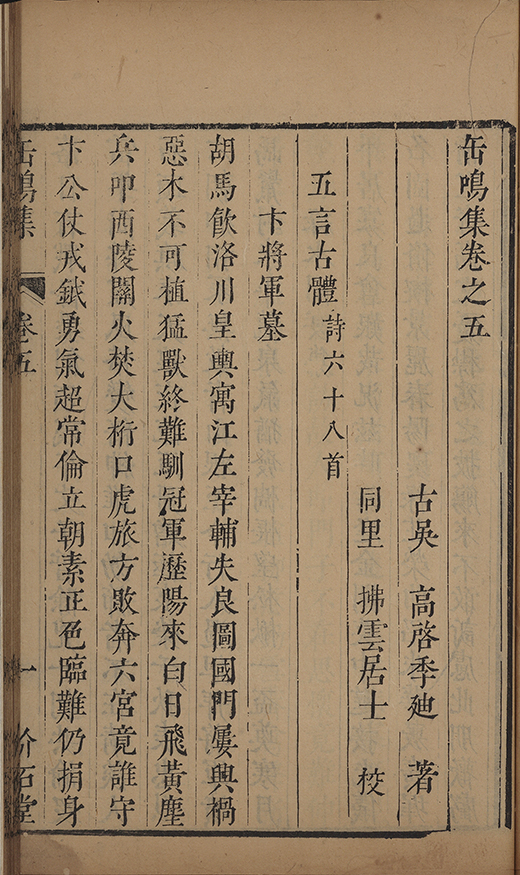 缶鳴集卷之五
古吳　高啓季迪　著
同里　拂雲居士　校
五言古體　詩六十八首
卞將軍墓
胡馬飲洛川皇輿寓江左宰輔失良圖國門屢興禍
惡木不可植猛獸終難馴冠軍歷陽來白日飛黃塵
兵叩西陵關火焚大桁口虎旅方敗奔六宮竟誰守
卞公仗戎鉞勇氣超常倫立朝素正色臨難仍捐身
缶鳴集　卷五　一